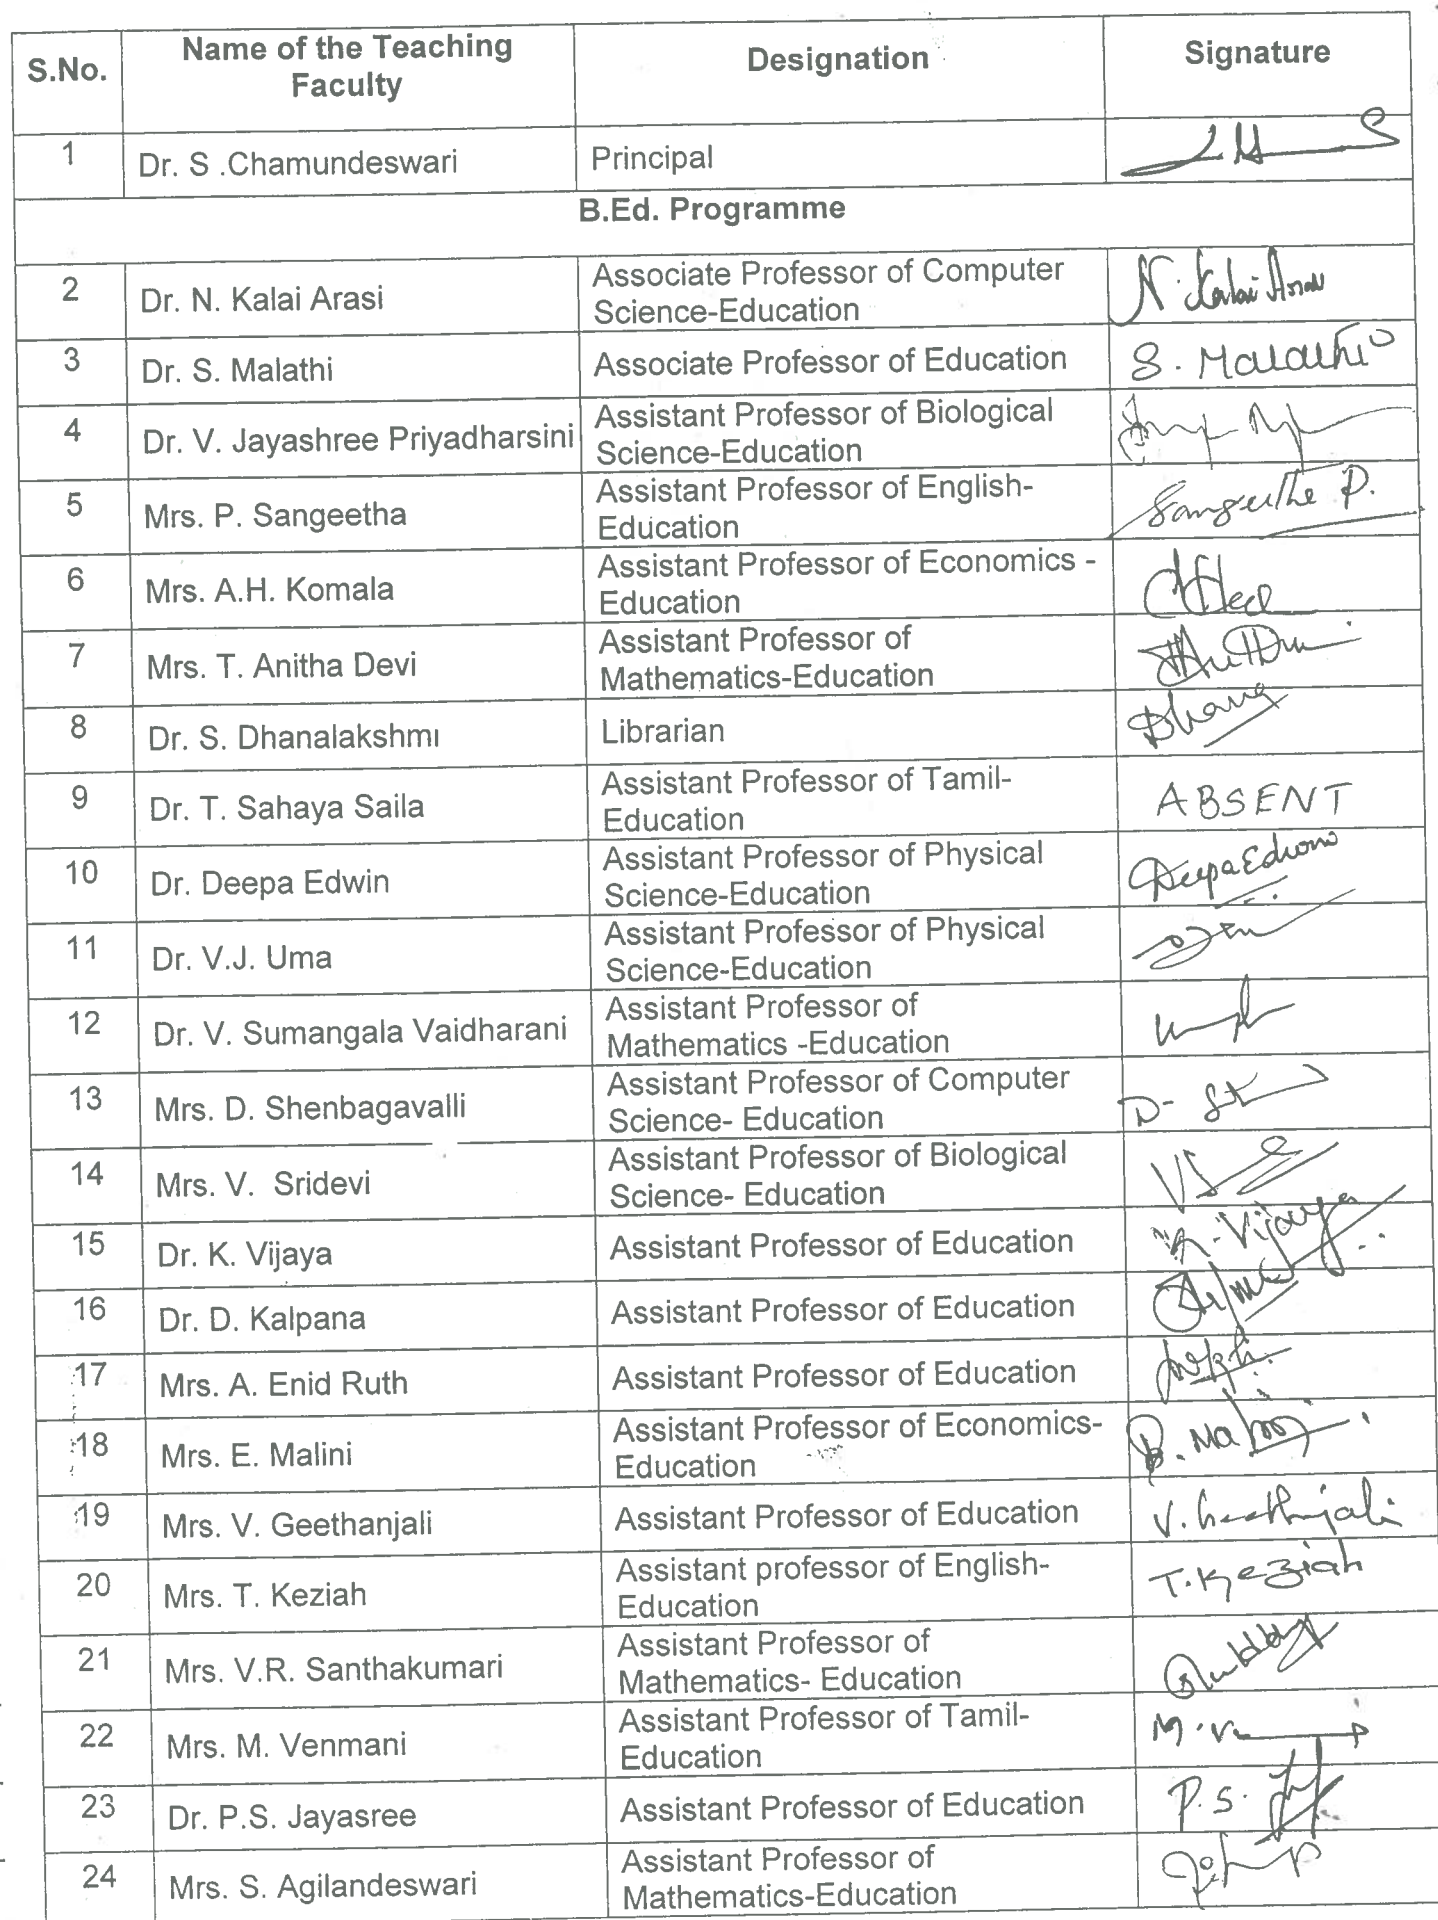 S.No.
Name of the Teaching
Faculty
Designation
Signature
1
Dr. S .Chamundeswari
Principal
B.Ed. Programme
2
Dr. N. Kalai Arasi
Associate Professor of Computer
Science-Education
N. Kalai Arasi
3
Dr. S. Malathi
Associate Professor of Education
S. Malathi
4
Dr. V. Jayashree Priyadharsini
Assistant Professor of Biological
Science-Education
5
Mrs. P. Sangeetha
Assistant Professor of English-
Education
Sangeetha P.
6
Mrs. A.H. Komala
Assistant Professor of Economics -
Education
7
Mrs. T. Anitha Devi
Assistant Professor of
Mathematics-Education
8
Dr. S. Dhanalakshmi
Librarian
Dhana
9
Dr. T. Sahaya Saila
Assistant Professor of Tamil-
Education
ABSENT
10
Dr. Deepa Edwin
Assistant Professor of Physical
Science-Education
Deepa Edwin
11
Dr. V.J. Uma
Assistant Professor of Physical
Science-Education
12
Dr. V. Sumangala Vaidharani
Assistant Professor of
Mathematics -Education
13
Mrs. D. Shenbagavalli
Assistant Professor of Computer
Science- Education
D-
14
Mrs. V. Sridevi
Assistant Professor of Biological
Science- Education
15
Dr. K. Vijaya
Assistant Professor of Education
K. Vijaya
16
Dr. D. Kalpana
Assistant Professor of Education
17
Mrs. A. Enid Ruth
Assistant Professor of Education
18
Mrs. E. Malini
Assistant Professor of Economics-
Education
19
Mrs. V. Geethanjali
Assistant Professor of Education
V. Geethanjali
20
Mrs. T. Keziah
Assistant professor of English-
Education
T. Keziah
21
Mrs. V.R. Santhakumari
Assistant Professor of
Mathematics- Education
22
Mrs. M. Venmani
Assistant Professor of Tamil-
Education
23
Dr. P.S. Jayasree
Assistant Professor of Education
P. S.
24
Mrs. S. Agilandeswari
Assistant Professor of
Mathematics-Education